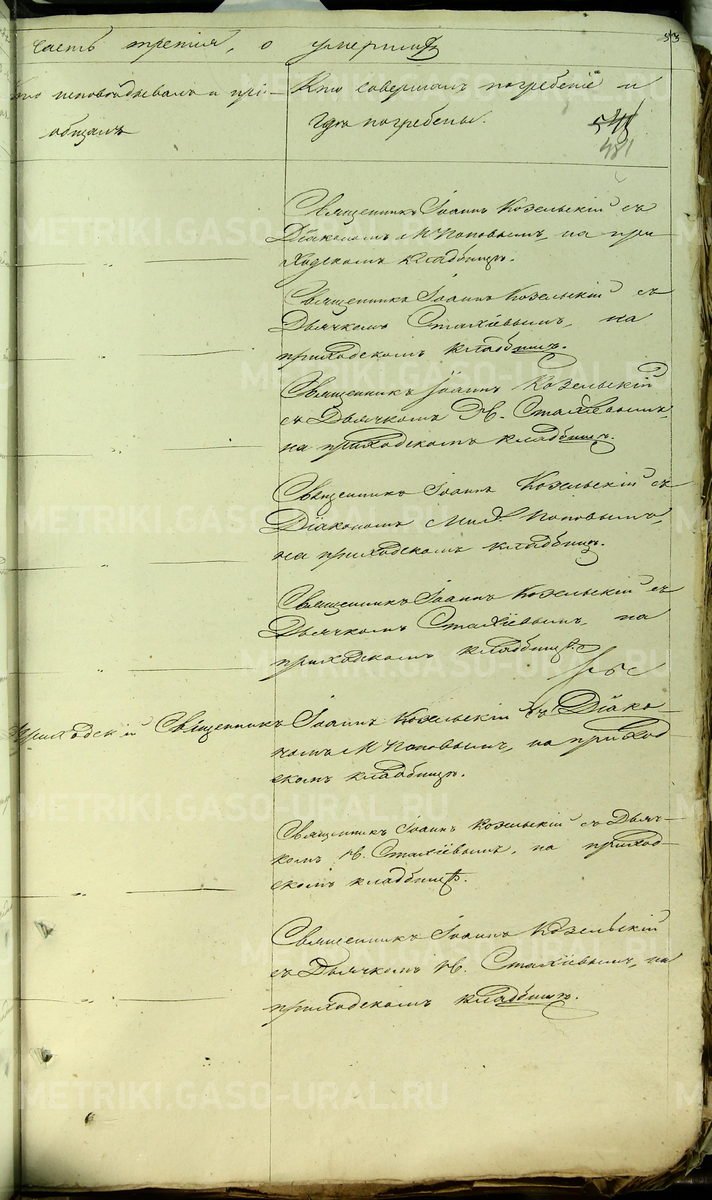 53
часть третія, о умершихъ
кто исповѣдывалъ и прі-
общалъ
Кто совершалъ погребеніе и
гдѣ погребены.
481
Священникъ Іоаннъ Козельскій съ
Діакономъ М Поповымъ, на при-
ходскомъ кладбищѣ.
Священникъ Іоаннъ Козельскій съ
Дьячкомъ Стахіевымъ, на
приходскомъ кладбищѣ.
Священникъ Іоаннъ Козельскій
съ Дьячкомъ Стахіевымъ,
на приходскомъ кладбищѣ.
Священникъ Іоаннъ Козельскій съ
Діакономъ Мих. Поповымъ,
на приходскомъ кладбищѣ.
Священникъ Іоаннъ Козельскій съ
Дьячкомъ Стахіевымъ, на
приходскомъ кладбищѣ.
Приходскій Священникъ
Іоаннъ Козельскій съ Діако-
номъ М Поповымъ, на приход-
скомъ кладбищѣ.
Священникъ Іоаннъ Козельскій съ Дьяч-
комъ Стахіевымъ, на приход-
скомъ кладбищѣ.
Священникъ Іоаннъ Козельскій
съ Дьячкомъ Стахіевымъ, на
приходскомъ кладбищѣ.
METRIKI.GASO-URAL.RU
METRIKI.GASO-URAL.RU
METRIKI.GASO-URAL.RU
METRIKI.GASO-URAL.RU
METRIKI.GASO-URAL.RU
METRIKI.GASO-URAL.RU
METRIKI.GASO-URAL.RU